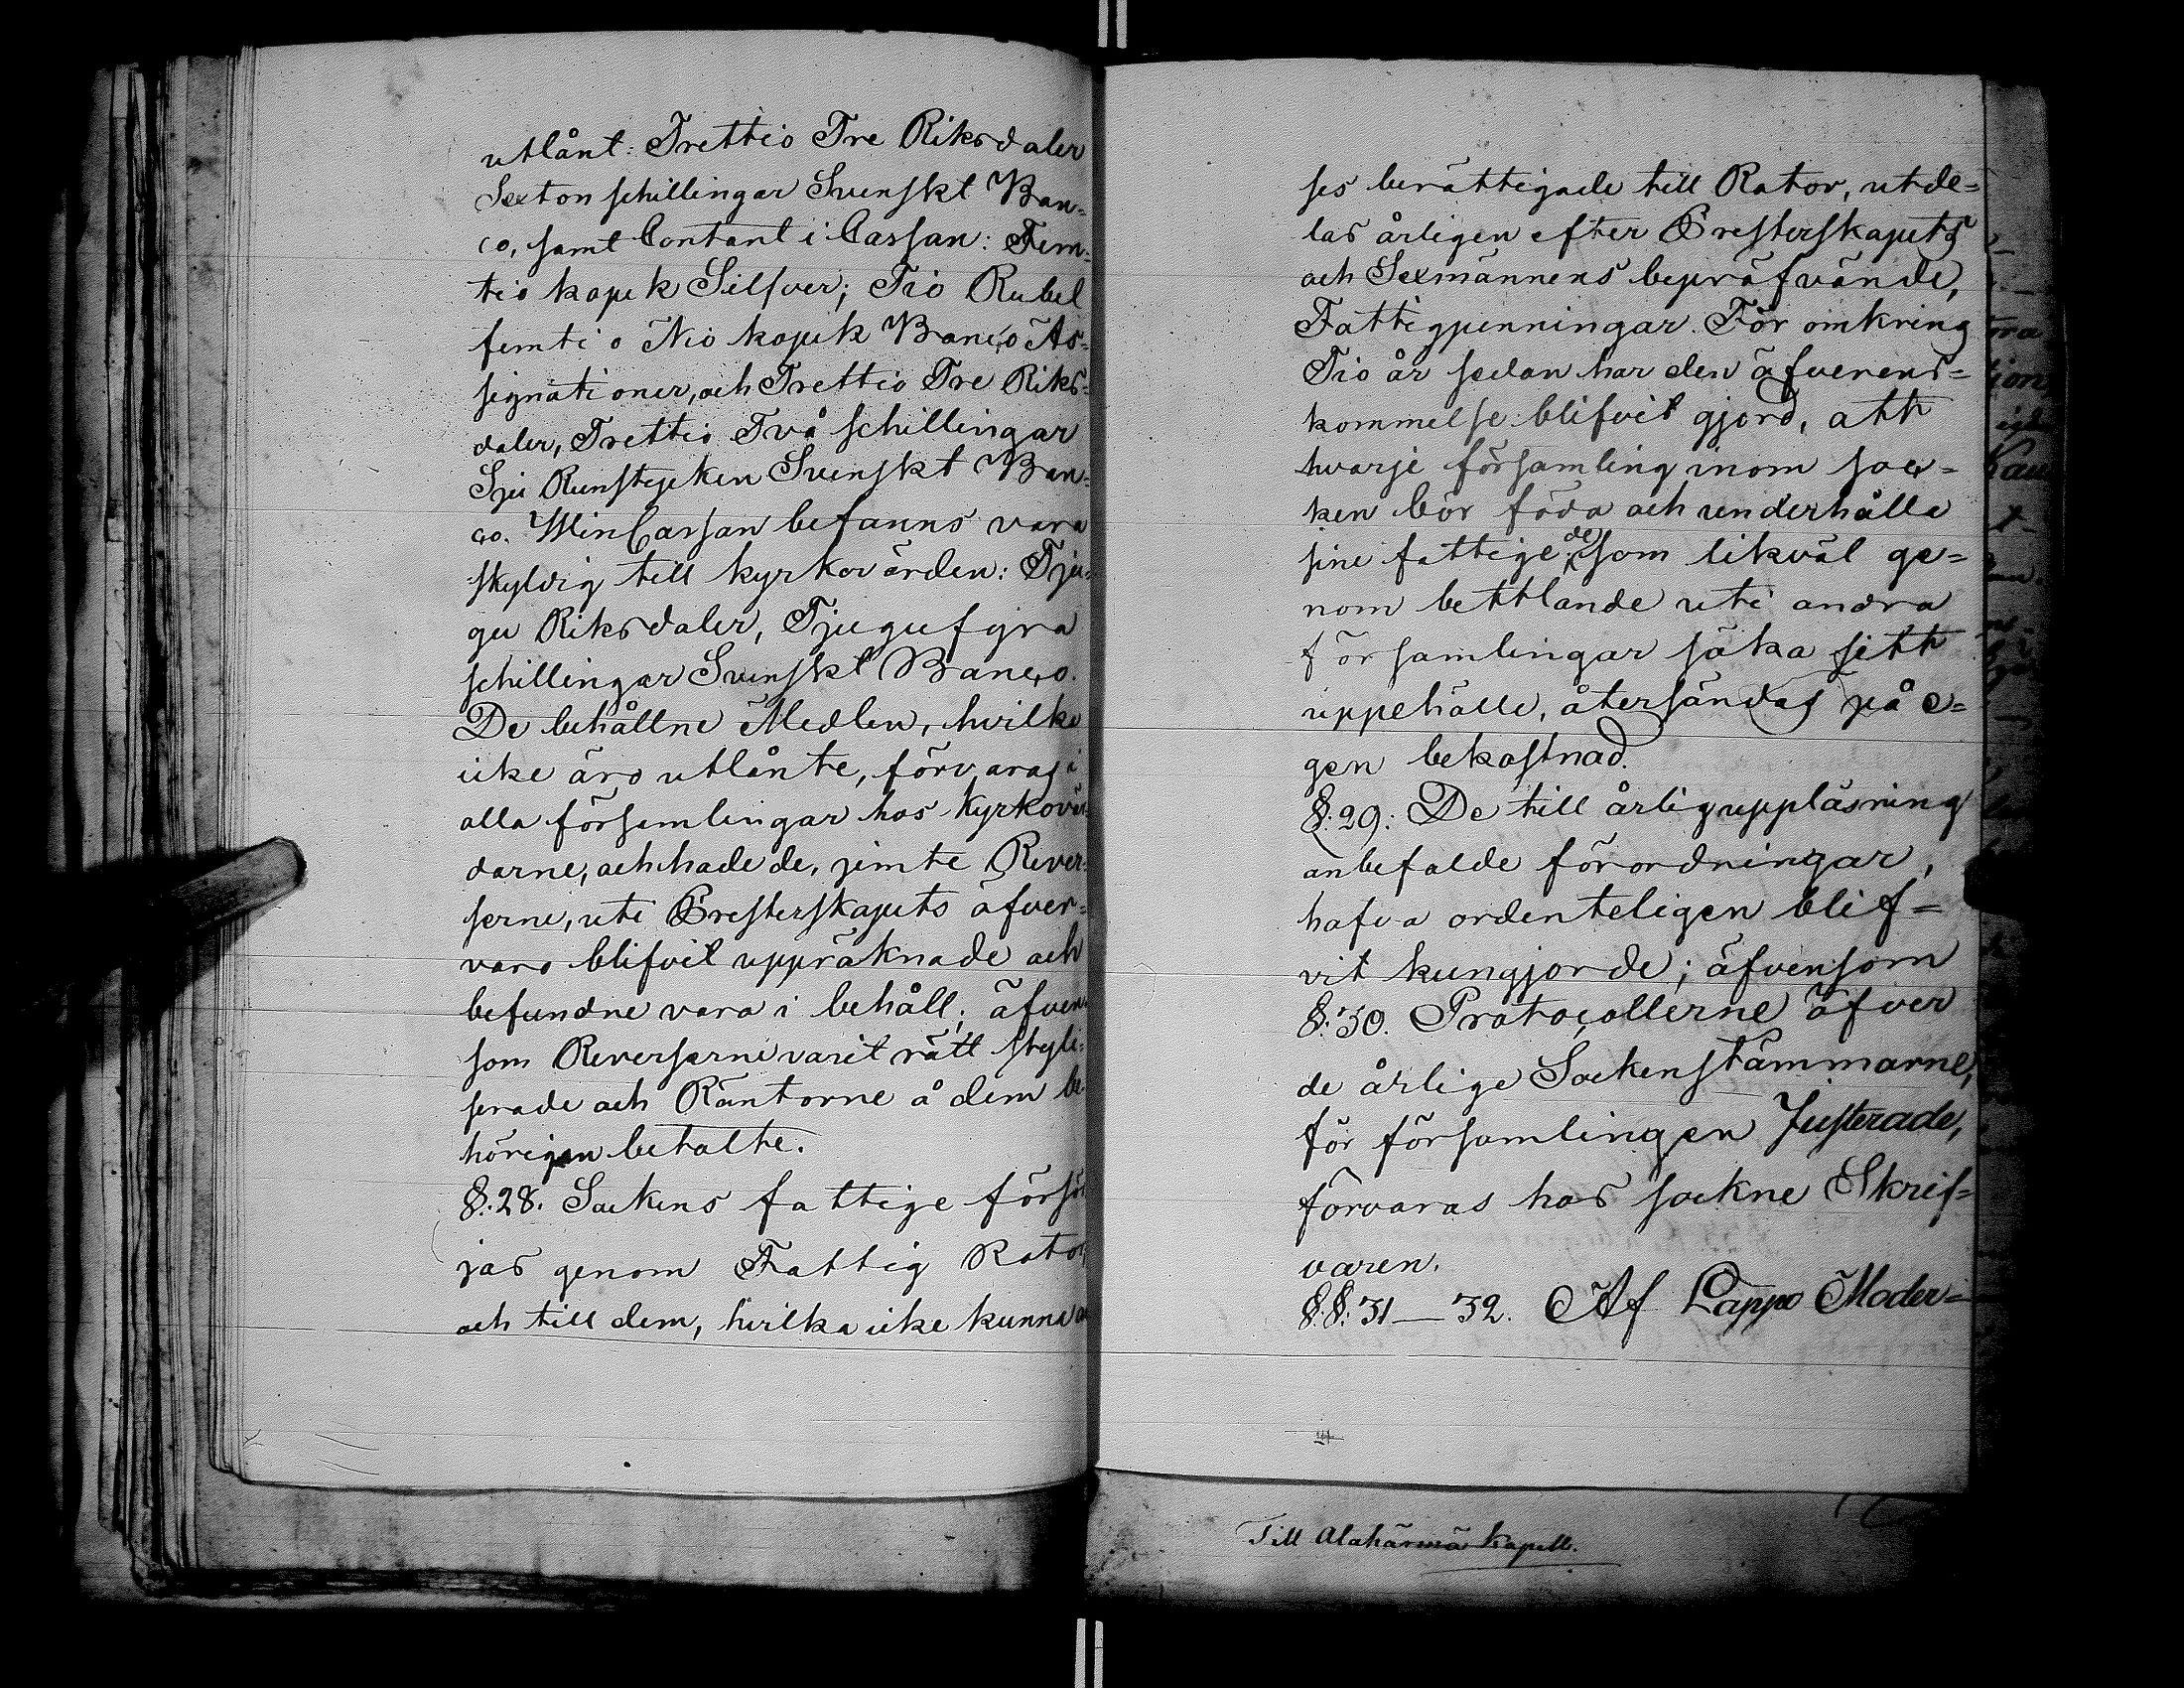 utlånt: Trettio Tre Riksdaler
Sexton schillingar Svenskt Ban=
co, samt Contant i Cassan: Fem=
tio kopek Silfver; Tio Rubel
femtio Nio kopek Banco As=
signationer, och Trettio Tre Riks=
daler, Trettio Två schillingar
Sju Runstycken Svenskt Ban=
co. Vin Cassan befanns vara
skyldig till kyrkovärden: Tju=
gu Riksdaler, Tjugufyra
schillingar Svenskt Banco.
De behållne Medlen, hvilke
icke äro utlånte, förvaras i
alla församlingar hos Kyrkovär
darne, och hade de, jemte Rever=
serne, uti Presterskapets öfver=
varo blifvit uppräknade och
befundne vara i behåll; äfven
som Reverserne varit rätt styli=
serade och Räntorne å dem be
hörigen betalte.
§. 28. Sockens fattige försör
jas genom Fattig Rotor,
och till dem, hvilka icke kunna
ses berättigade till Rotor, utde=
las årligen efter Presterskapets
och Sexmännens bepröfvände,
Fattigpenningar. För omkring
Tio år sedan har den öfverens=
kommelse blifvit gjord, att
hvarje församling inom soc=
ken bör föda och underhålla
sine fattige; de som likväl ge=
nom bettlande uti andra
församlingar söka sitt
uppehälle, återsändas på e=
gen bekostnad.
§. 29. De till årlig uppläsning
anbefalde förordningar,
hafva ordenteligen blif=
vit kungjorde; äfvensom
§. 30. Protocollerne öfver
de årlige Sockenstämmorne,
för församlingen Justerade,
förvaras hos sockne Skrif=
varen.
§.§. 31—32. Af Lappo Moder=
Till Alahärmä Kapell.